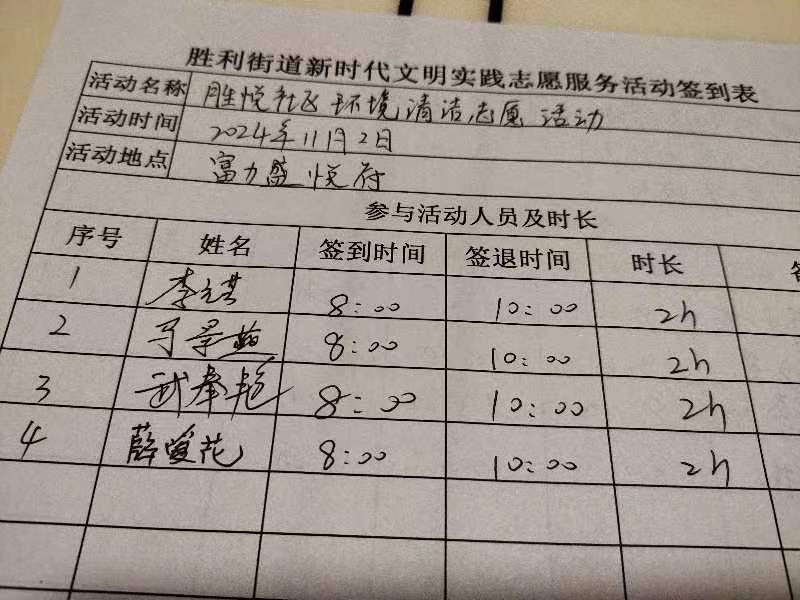 胜利街道新时代文明实践志愿服务活动签到表
活动名称 胜悦社区环境清洁志愿活动
活动时间 2024年11月2日
活动地点 富力盛悦府
参与活动人员及时长
序号 姓名 签到时间 签退时间 时长
1 8:00 10:00 2h
2 8:00 10:00 2h
3 8:00 10:00 2h
4 薛爱花 8:00 10:00 2h